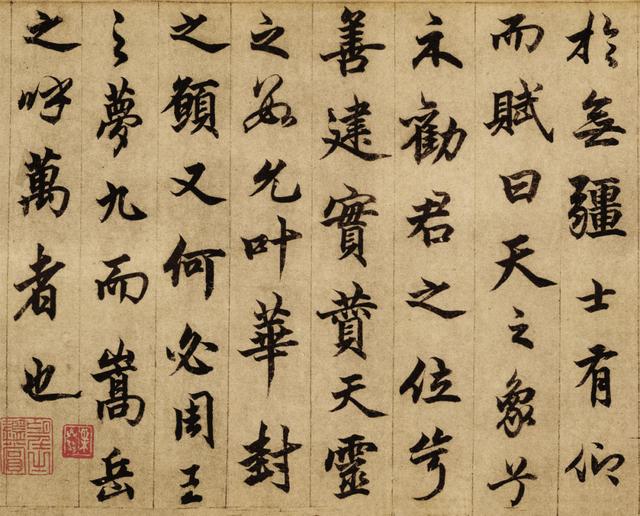 於無疆士有仰
而賦曰天之象兮
示勸君之位兮
善建實蕡天靈
之數允叶華封
之願又何必周王
之夢九而嵩岳
之呼萬者也